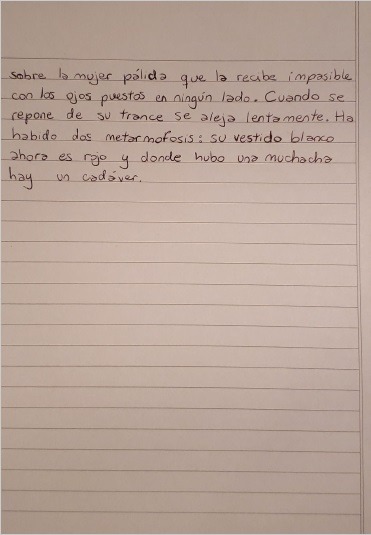 sobre la mujer pálida que la recibe impasible
con los ojos puestos en ningún lado. Cuando se
repone de su trance se aleja lentamente. Ha
habido dos metarmofosis: su vestido blanco
ahora es rojo y donde hubo una muchacha
hay un cadáver.